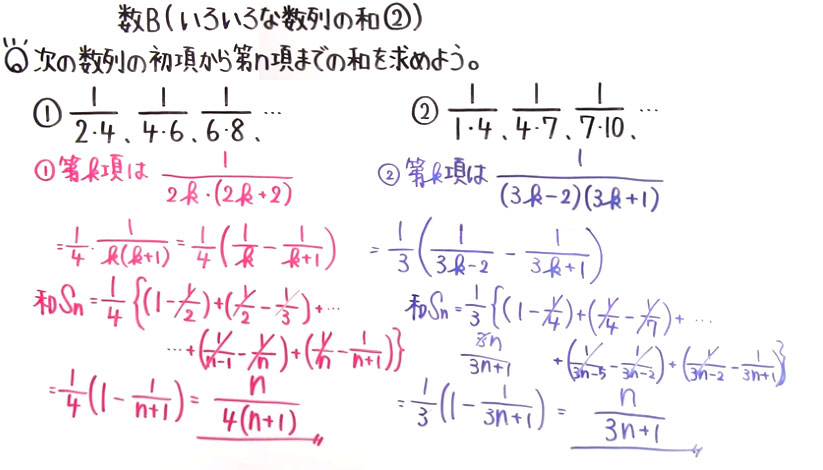 数B(いろいろな数列の和②)
次の数列の初項から第n項までの和を求めよう。
① 1/(2·4)、1/(4·6)、1/(6·8)、…
② 1/(1·4)、1/(4·7)、1/(7·10)、…
①第k項は 1/(2k·(2k+2))
=1/4·1/(k(k+1))=1/4(1/k-1/(k+1))
和Sn=1/4{(1-1/2)+(1/2-1/3)+…
…+(1/(n-1)-1/n)+(1/n-1/(n+1))}
=1/4(1-1/(n+1))=n/(4(n+1))〃
②第k項は 1/((3k-2)(3k+1))
=1/3(1/(3k-2)-1/(3k+1))
和Sn=1/3{(1-1/4)+(1/4-1/7)+…
3n/(3n+1) +(1/(3n-5)-1/(3n-2))+(1/(3n-2)-1/(3n+1))}
=1/3(1-1/(3n+1))=n/(3n+1)〃